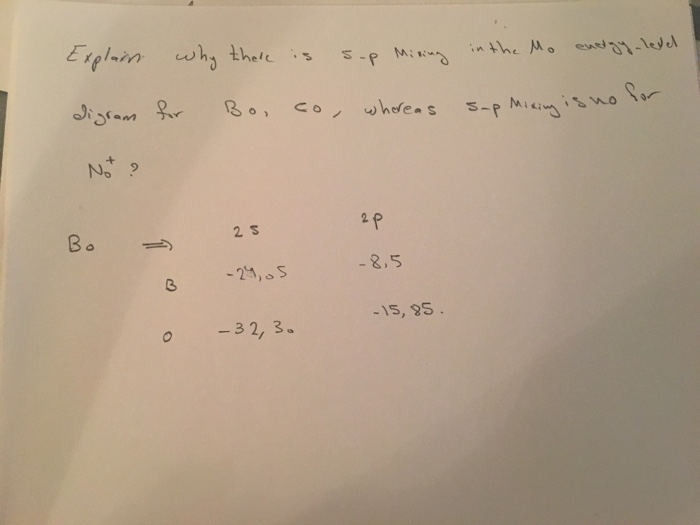 Explain why there is s-p Mixing in the Mo energy-level
digram for Bo, co, whereas s-p Mixing is no for
No+ ?
2s 2p
Bo ⇒
B -24,05 -8,5
O -32,30 -15,85.